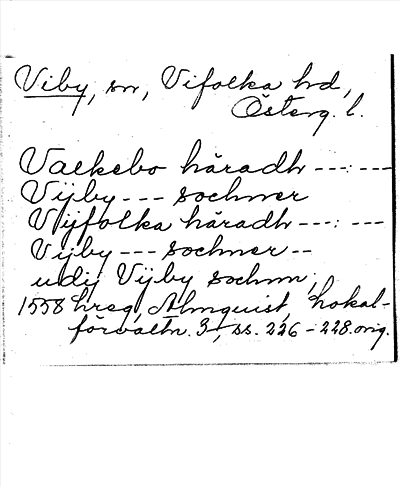 Viby, sn, Vifolka hd,
Österg. l.
Valkebo häradh ---:---
Vijby --- sochner
Vijfolka häradh ---: ---
Vijby --- sochner --
udij Vijby sochnn,
1558 hrsg, Almquist, Lokal-
förvaltn. 3, ss. 226-228. orig.